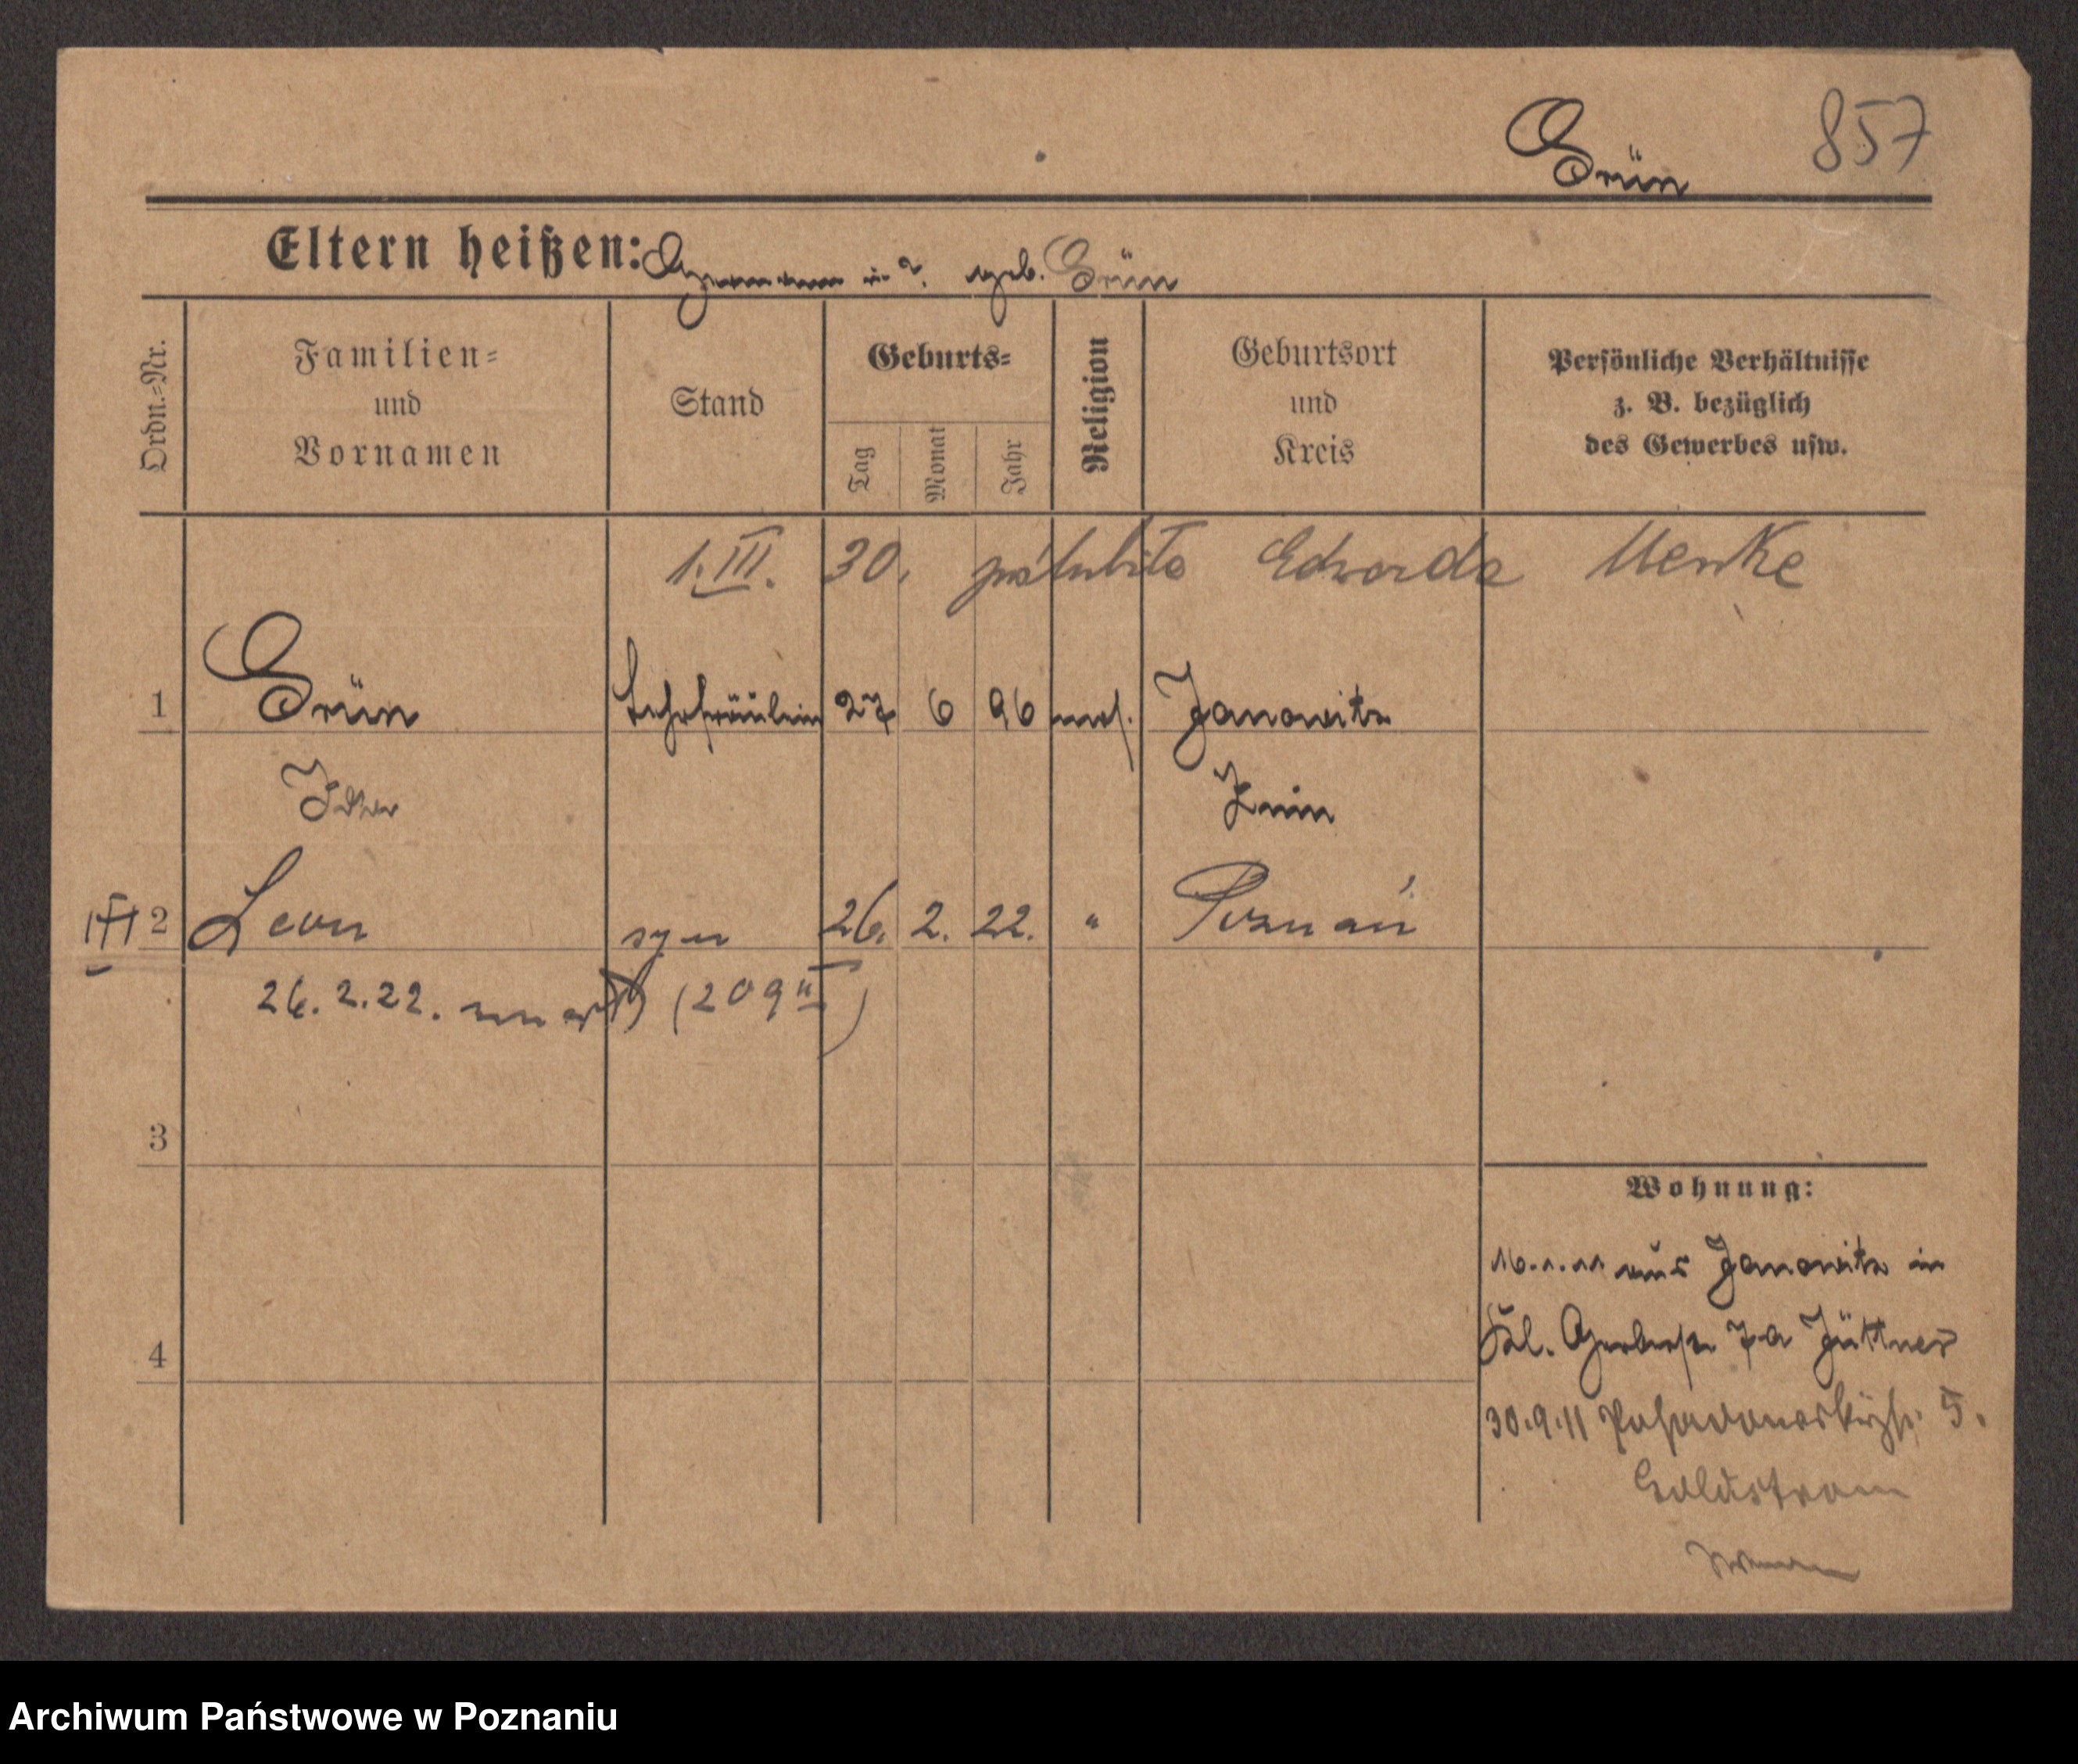 Grün 857
Eltern heißen: Hermann u ? geb. Grün
Ordn.=Nr.
Familien=
und
Vornamen
Stand
Geburts=
Tag
Monat
Jahr
Religion
Geburtsort
und
Kreis
Persönliche Verhältnisse
z. B. bezüglich
des Gewerbes usw.
1.III. 30. poślubiła Edwarda Menke
1 Grün Lehrfräulein 27 6 96 mos. Janowitz
Ida Znin
2 Leon syn 26. 2. 22. " Poznań
26.2.22. (209 II)
3
4
Wohnung:
16.1.11 aus Janowitz in
Kl. Gerberstr 7a Jüttner
30.9.11 5.
Goldstrom
Archiwum Państwowe w Poznaniu